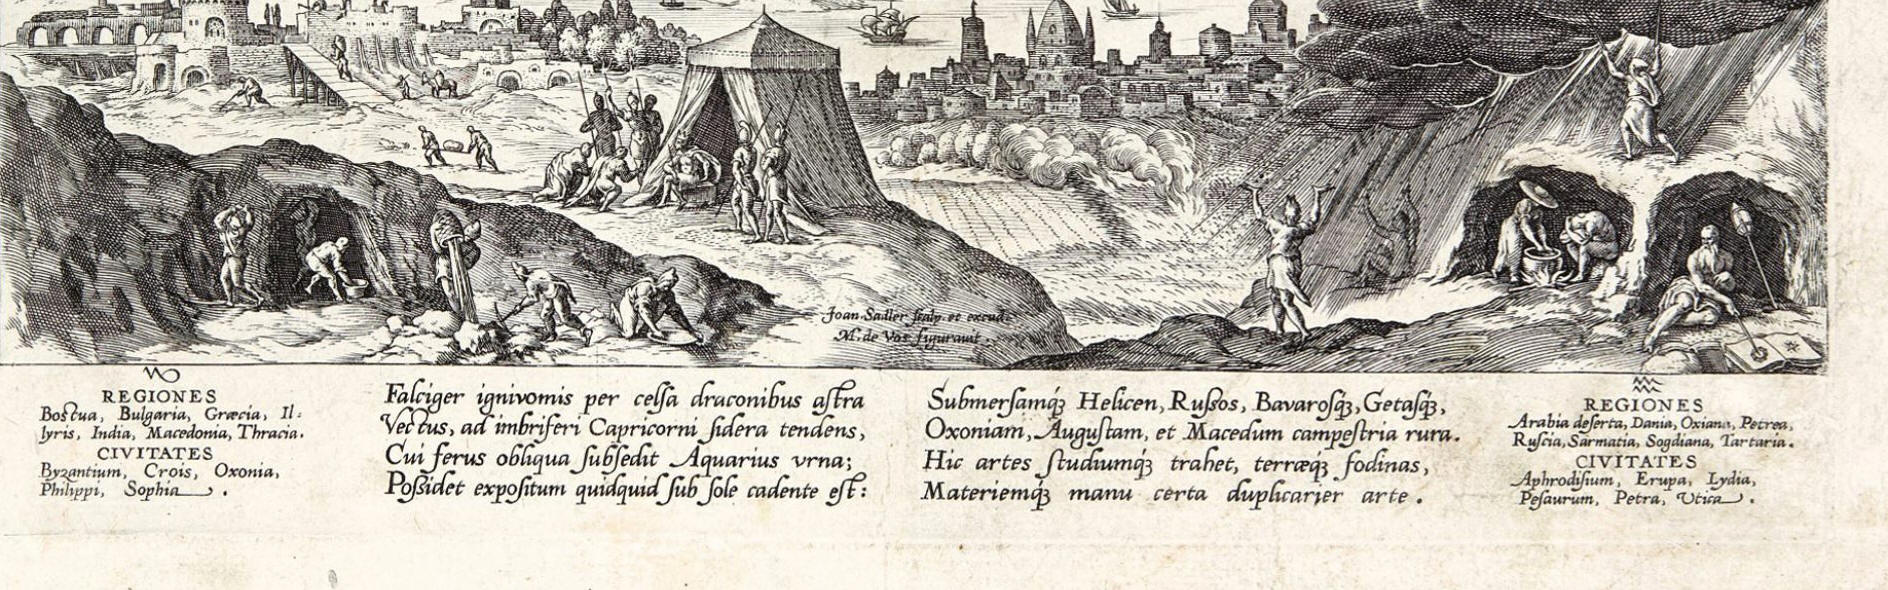 Joan. Sadler scalp. et excud.
M. de Vos figuravit.
REGIONES
Bostua, Bulgaria, Græcia, Il=
lyris, India, Macedonia, Thracia.
CIVITATES
Byzantium, Crois, Oxonia,
Philippi, Sophia.
Falciger ignivomis per celsa draconibus astra
Vectus, ad imbriferi Capricorni sidera tendens,
Cui ferus obliqua subsedit Aquarius vrna;
Poßidet expositum quidquid sub sole cadente est:
Submersamq́ꝫ Helicen, Rußos, Bavarosq́ꝫ, Getasq́ꝫ,
Oxoniam, Augustam, et Macedum campestria rura.
Hic artes studiumq́ꝫ trahet, terræq́ꝫ fodinas,
Materiemq́ꝫ manu certa duplicarier arte.
♒
REGIONES
Arabia deserta, Dania, Oxiana, Petrea,
Ruscia, Sarmatia, Sogdiana, Tartaria.
CIVITATES
Aphrodisium, Erupa, Lydia,
Pesaurum, Petra, Utica.